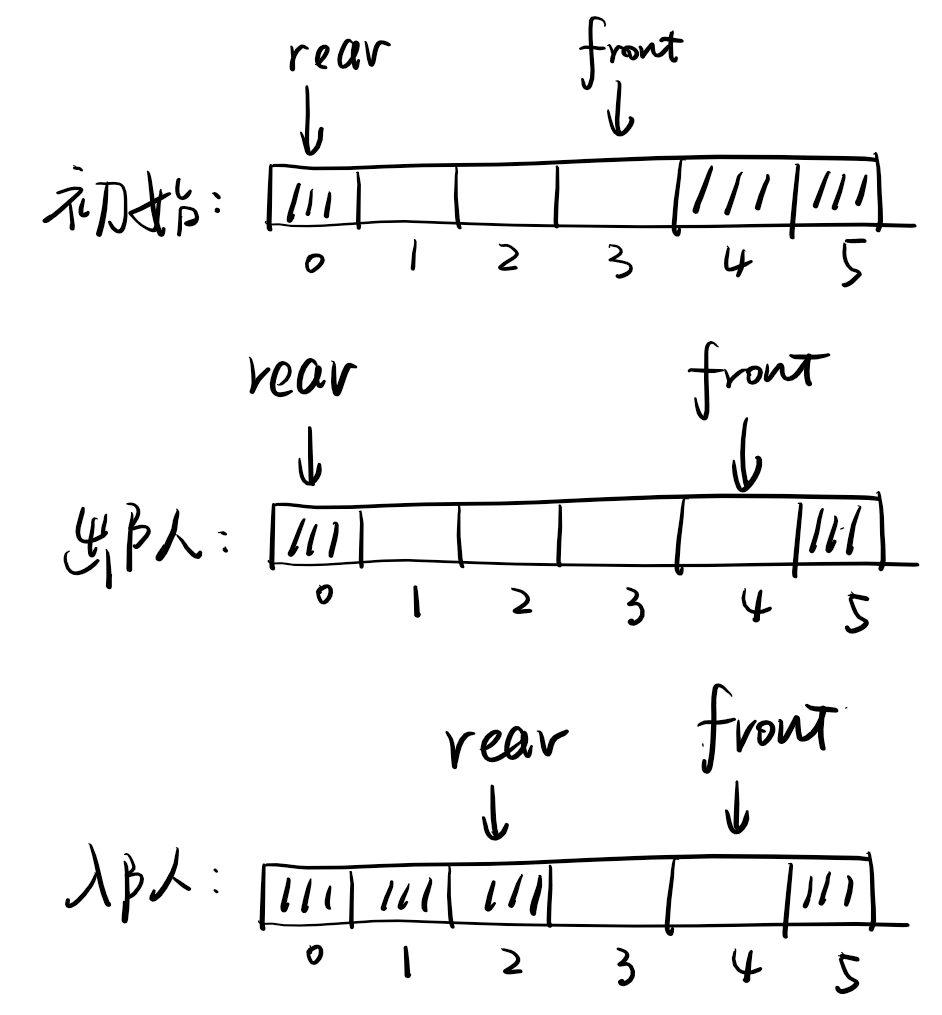 rear front
初始:
0 1 2 3 4 5
rear front
出队:
0 1 2 3 4 5
rear front
入队:
0 1 2 3 4 5